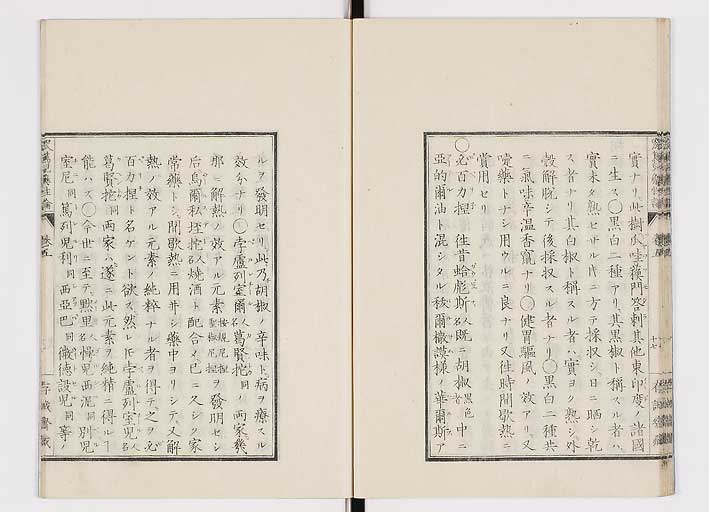 實ナリ此樹仄哇蘓門答剌其他東印度ノ諸國
ニ生ス〇黒白二種アリ其黒椒ト稱スル者ハ
實未タ熟セサル時ニ方テ採収シ日ニ晒シ乾
ス者ナリ其白椒ト稱スル者ハ實ヨク熟シ外
殼解脱シテ後採収スル者ナリ〇黒白二種共
ニ氣味辛温香竄ナリ〇健胃驅風ノ效アリ又
嚏藥トナシ用ウルニ良ナリ又徃時間歇熱ニ
賞用セリ
〇必百力捏 徃昔蛤彪斯人名既ニ胡椒黒色者中ニ
亞的爾油ト混シタル秡爾撒謨様ノ華爾斯ア
ルヲ發明セリ此乃胡椒ノ辛味ト病ヲ療スル
效分ナリ〇孛盧列室爾人名葛賢挖同ノ両家幾
那ニ解熱ノ效アル元素 ヲ發明セシ
后烏爾秡垤挖以燒酒ト配合メ已ニ久シク家
常藥トシ間歇熱ニ用并シ藥中ヨリシテ又解
熱ノ效アル元素ノ純粹ナル者ヲ得テ之ヲ必
百力捏ト名ケント欲ス然レ𪜈孛盧列室児人名
葛賢挖同両家ハ遂ニ此元素ヲ純精ニ得ルヿ
能ハス〇今世ニ至テ黙里人名 児西泥同別児
室尼同篤列児利同西亞巴同微徳設児同等ノ
巻五
十七